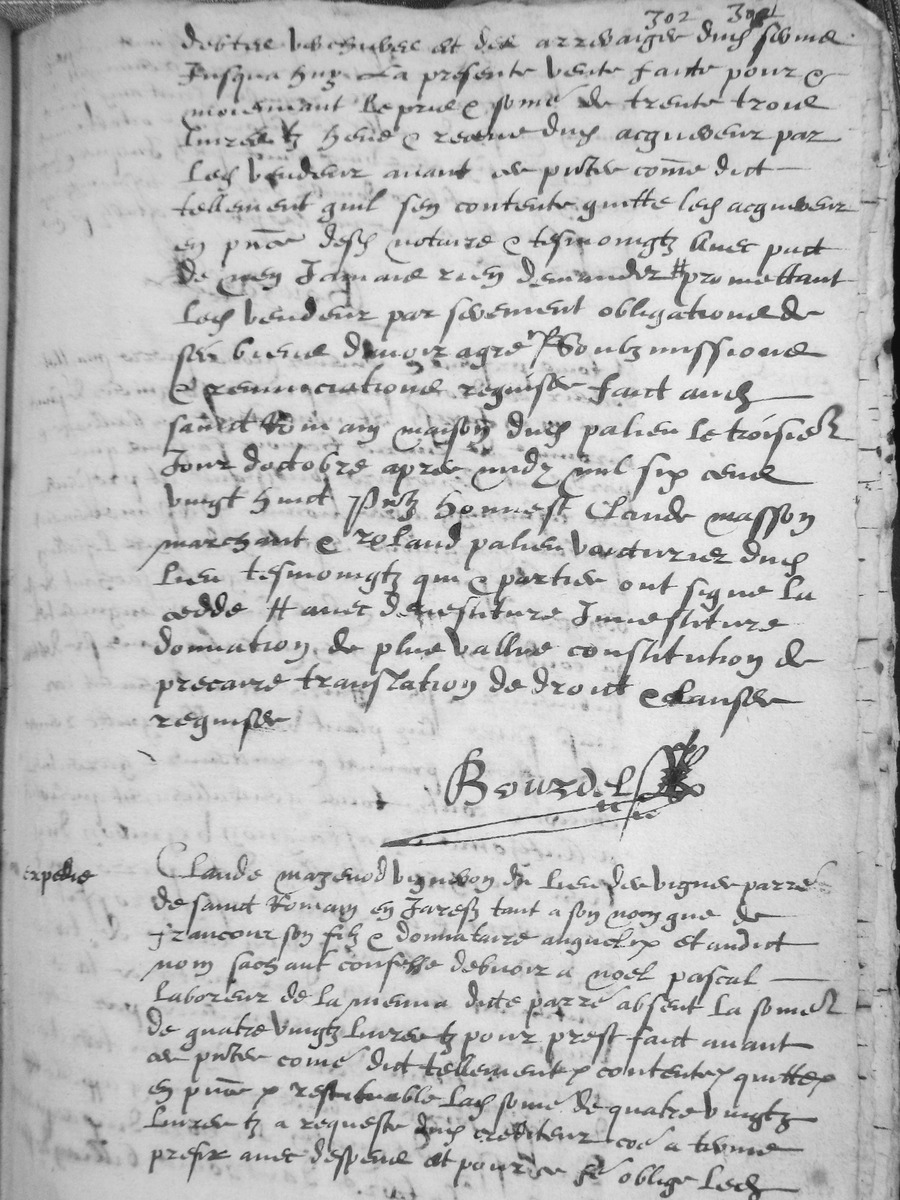 302 302
debtes et des arreraiges dud servis
Jusqua huy La presente vente faicte pour &
moiennant le pris & some de trente trois
livres tz heue & receue dud acquereur par
led vendeur avant ces pntes come dict
tellement quil sen contente quitte led acquereur
en pnce desd notaire & tesmoingtz avec pact
de nen Jamais rien demander # promettant
led vendeur par serement obligations de
ses biens davoir agre Soubzmissions
& renunciations requises faict aud
sainct Romain maison dud palieu le troisie
Jour doctobre apres midy mil six cens
vingt huict pntz honnest Claude masson
marchant & Roland palieu voicturier dud
lieu tesmoingtz qui & parties ont signe la
cedde # avec devestiture Jnvestiture
donnation de plus vallue constitution de
precaire translation de droict & clauses
requises
Bourdel
expedie
Claude mazenod vigneron du lieu des vignes parre
de sainct Romain en Jarestz tant a son nom que de
francour son filz & donnataire auquel et audict
nom sachant confesse debvoir a noel pascal
laboreur de la mesma dicte parre absent la some
de quatre vingtz livres tz pour prest faict avant
ces pntes come dict tellement contente quitte
en pnce restituable lad some de quatre vingtz
livres tz a requeste dud crediteur coe a terme
prefix avec despens et pour ce fe oblige led